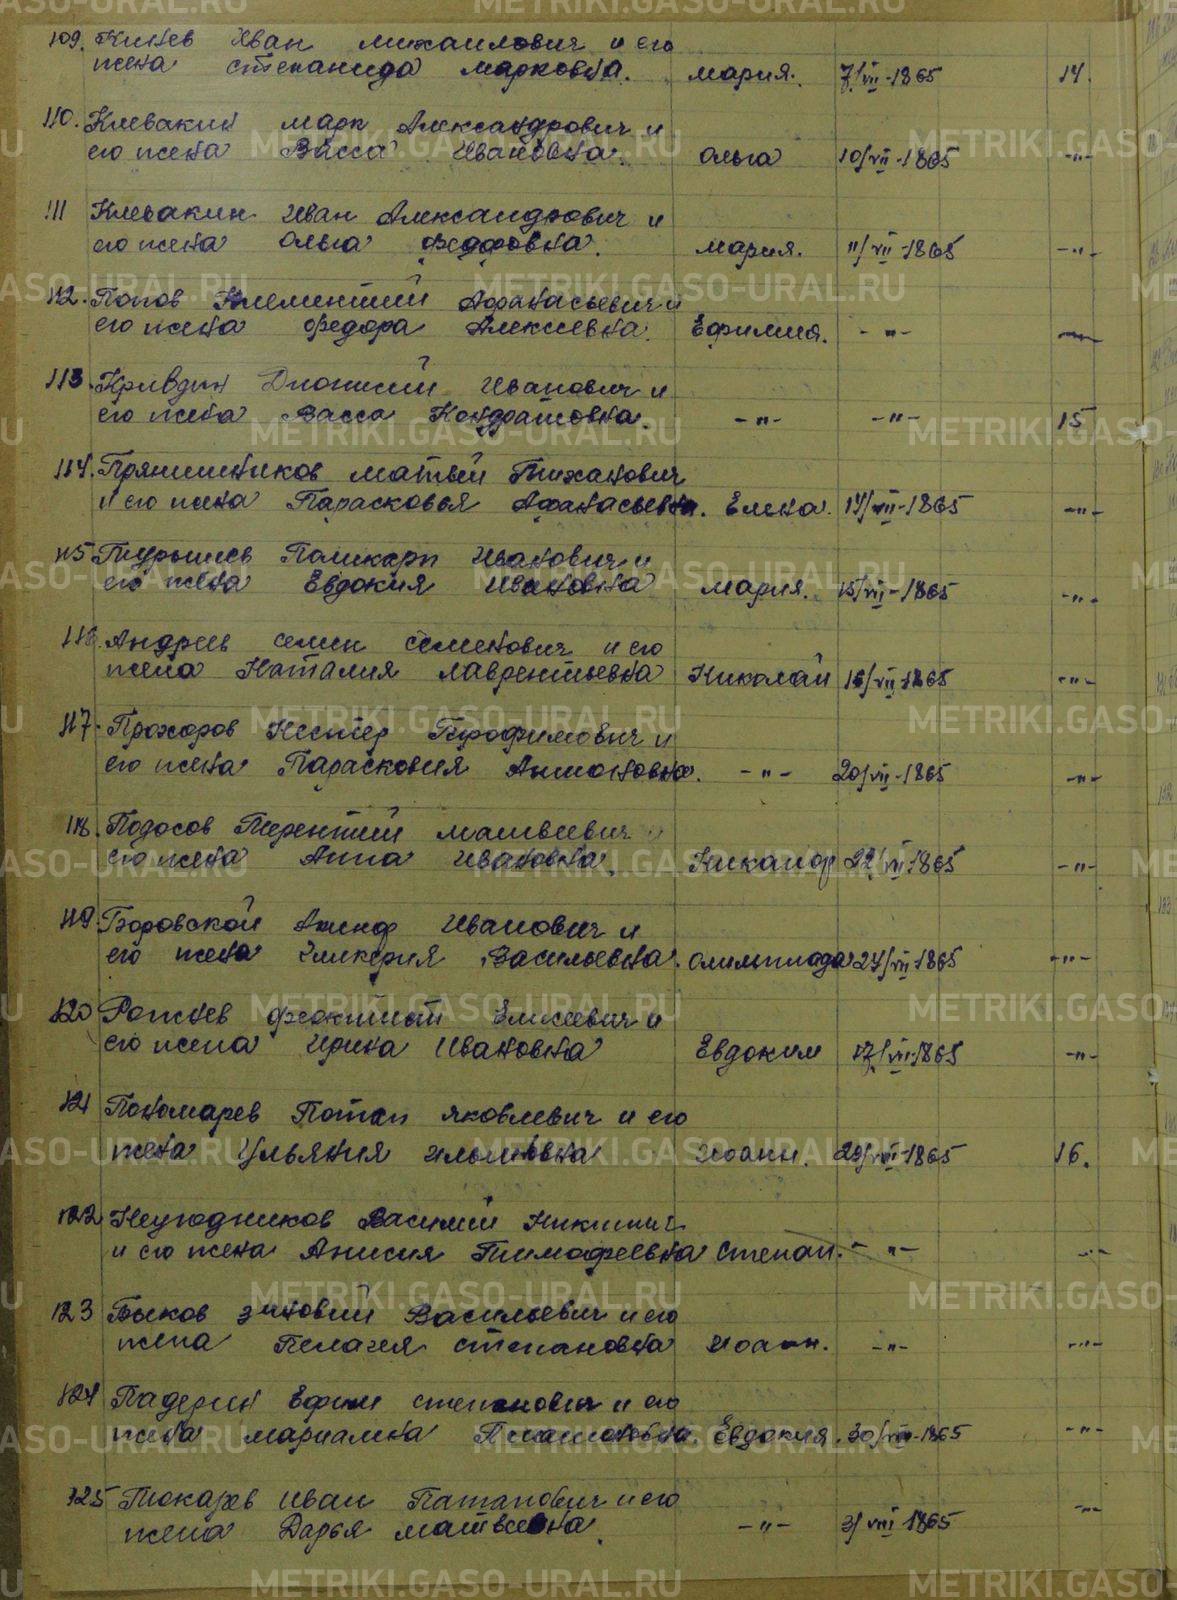 109. Князев Иван Михаилович и его
жена Степанида Марковна. Мария. 7/VII-1865 14.
110. Клевакин Марк Александрович и
его жена Васса Ивановна. Ольга 10/VII-1865 -"-
111 Клевакин Иван Александрович и
его жена Ольга Федоровна. Мария. 11/VII-1865 -"-
112. Попов Клементий Афанасьевич и
его жена Федора Алексеевна. Ефимия. -"- -"-
113. Кривдин Дионисий Иванович и
его жена Васса Кондратовна. -"- -"- 15
114. Прянишников Матвей Тиханович
и его жена Парасковья Афанасьевна. Елена. 14/VII-1865 -"-
115 Турышев Поликарп Иванович и
его жена Евдокия Ивановна Мария. 15/VII-1865 -"-
116. Андреев Семен Семенович и его
жена Наталия Лаврентьевна Николай 16/VII-1865 -"-
117. Прохоров Нестер Трофимович и
его жена Парасковия Антоновна. -"- 20/VII-1865 -"-
118. Подосов Терентий Матвеевич и
его жена Анна Ивановна. Никанор 22/VII-1865 -"-
119. Боровской Акинф Иванович и
его жена Гликерия Васильевна. Олимпиада 24/VII-1865 -"-
120 Феоктист Елисеевич и
его жена Ирина Ивановна Евдоким 27/VII-1865 -"-
121 Пономарев Потап Яковлевич и его
жена Ульяния Ильиновна Иоанн. 29/VII-1865 16.
122 Неугодников Василий Никитич
и его жена Анисия Тимофеевна Степан. -"- -"-
123 Быков Зиновий Васильевич и его
жена Пелагея Степановна Иоанн. -"- -"-
124 Падерин Ефим Степанович и его
жена Мариамна Платоновна. Евдокия. 30/VII-1865 -"-
125 Токарев Иван Патапович и его
жена Дарья Матвеевна. -"- 31/VII 1865 -"-
METRIKI.GASO-URAL.RU